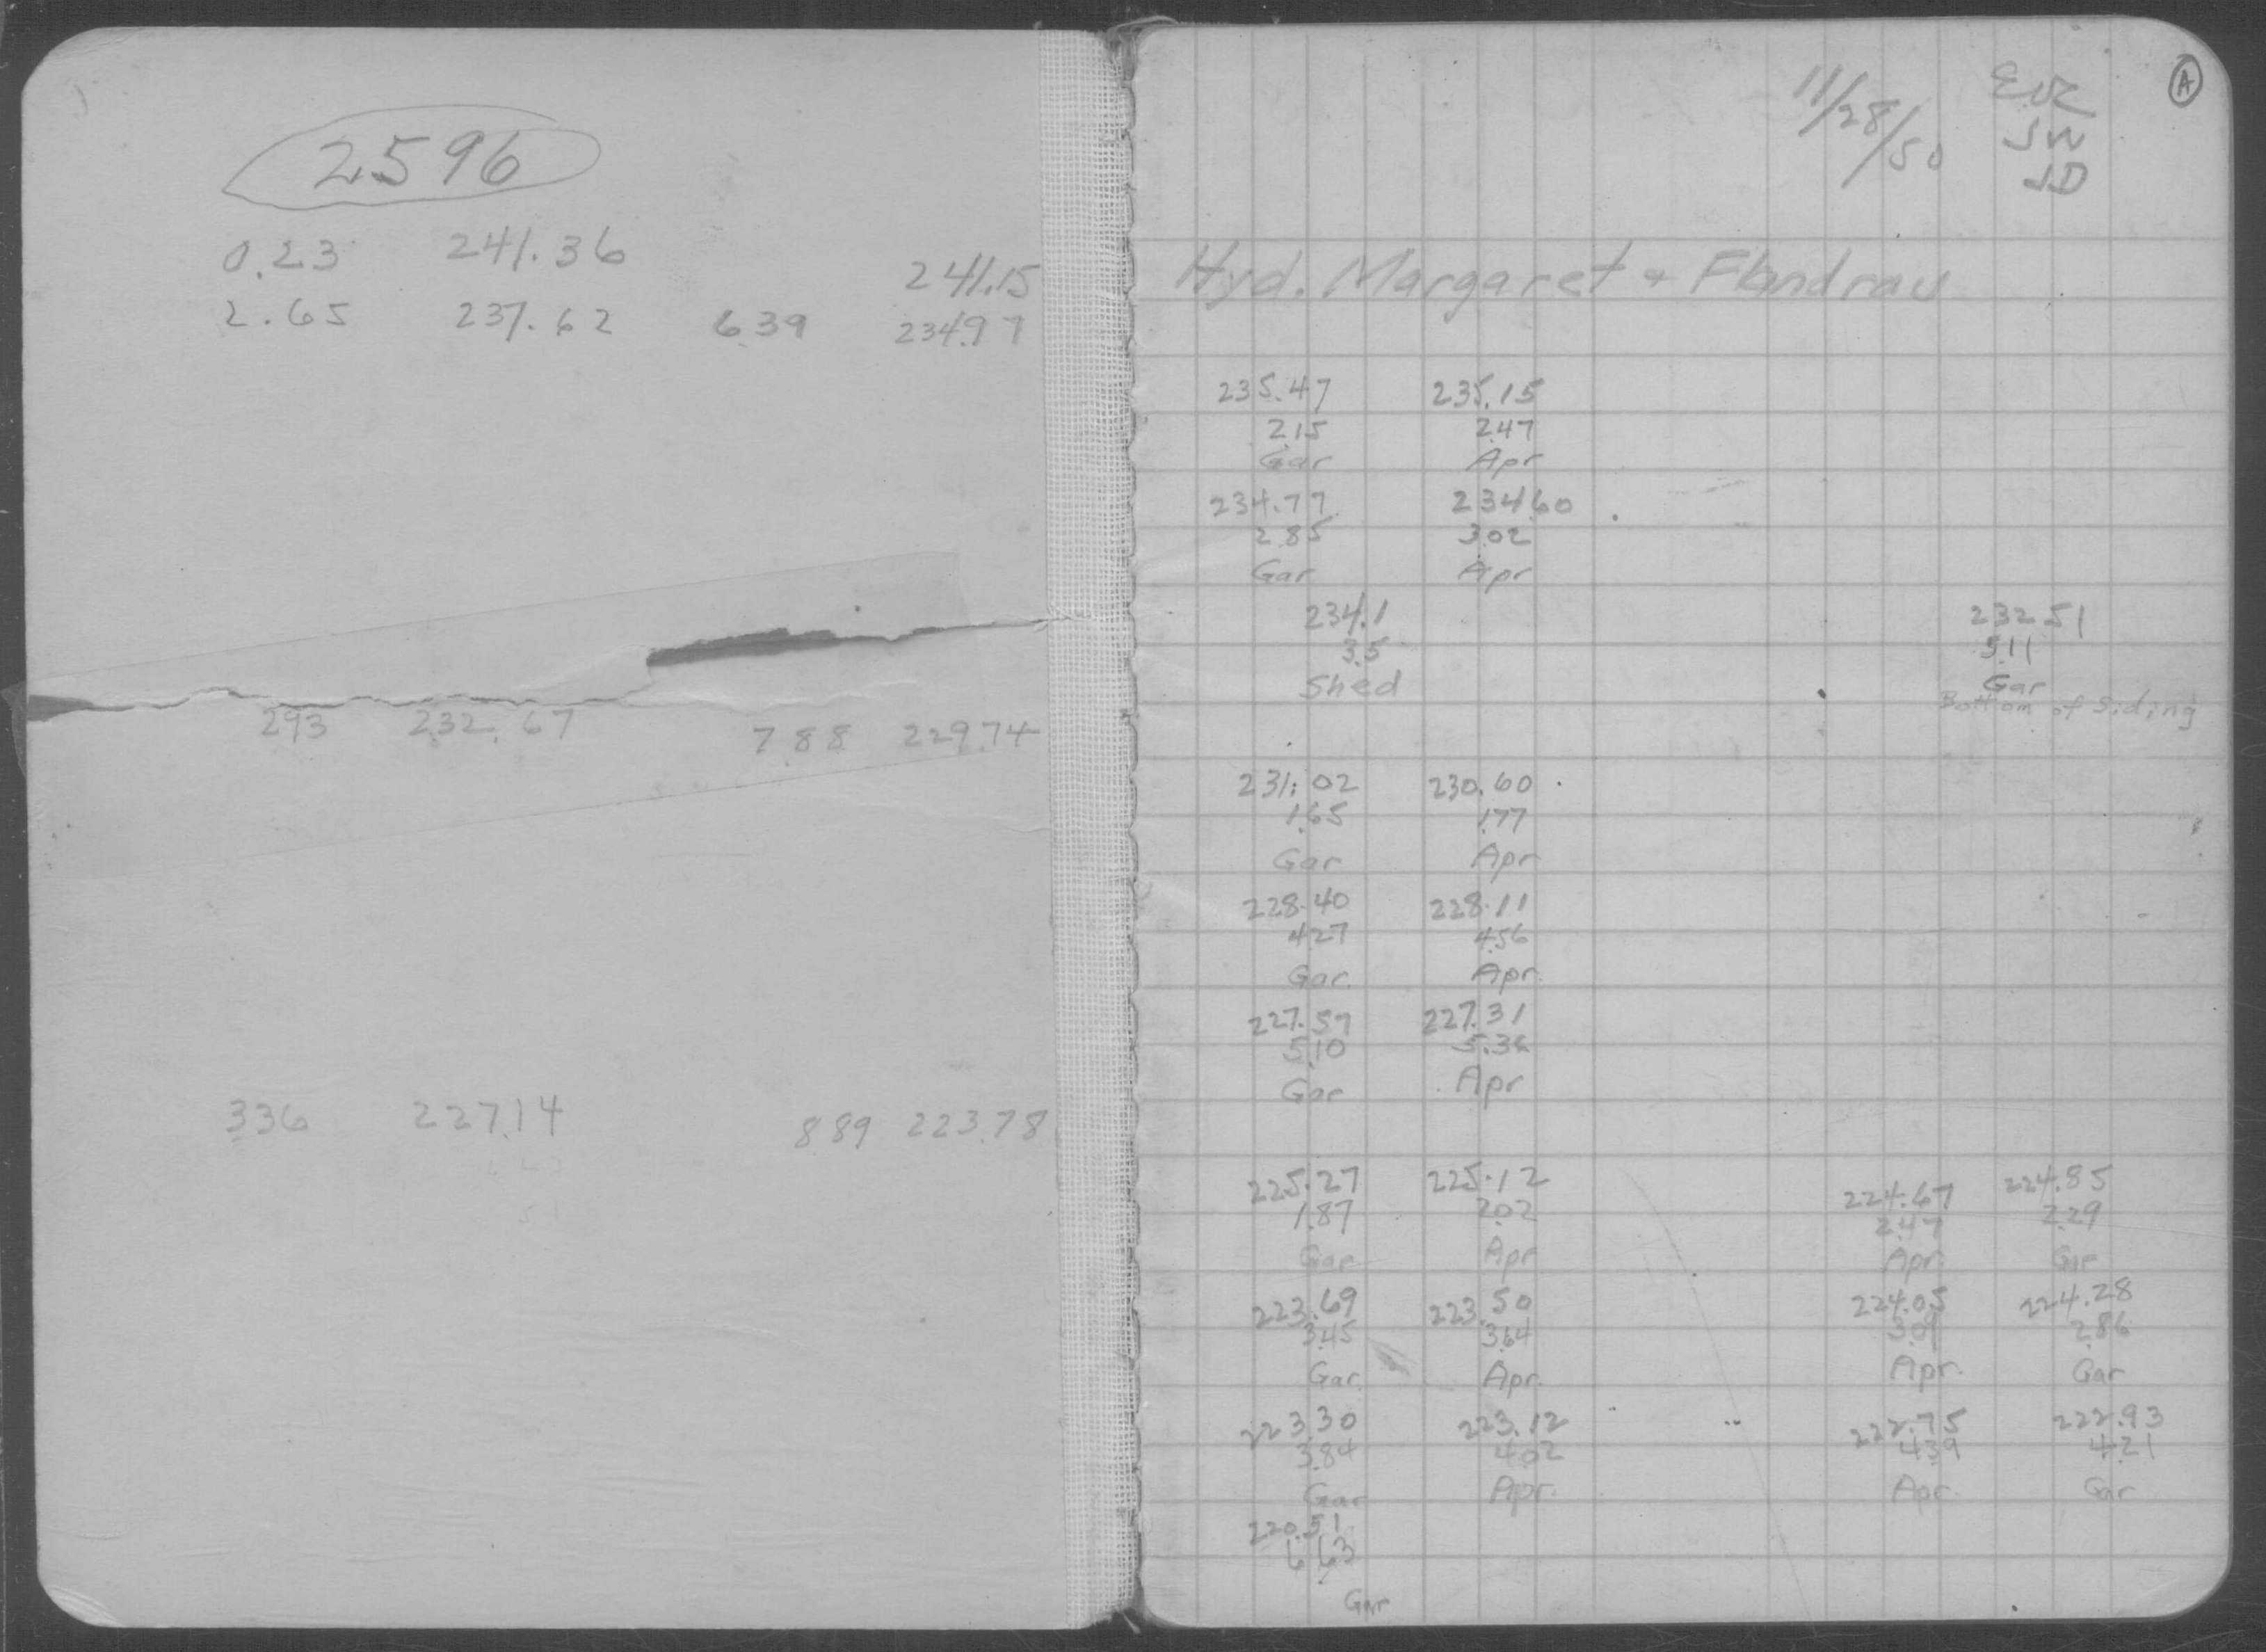 2596
0.23 241.36
241.15
2.65 237.62 6.39 234.97
2.93 232.67 7.88 229.74
3.36 227.14 8.89 223.78
A
11/28/50
SW
JD
Hyd. Margaret & Flandrau
235.47 235.15
2.15 2.47
Gar Apr
234.77 234.60
2.85 3.02
Gar Apr
234.1 232.51
3.5 5.11
Shed Gar
Bottom of Siding
231.02 230.60
1.65 1.77
Gar Apr
228.40 228.11
4.27 4.56
Gar. Apr.
227.57 227.31
5.10 5.36
Gar Apr
225.27 225.12 224.67 224.85
1.87 2.02 2.47 2.29
Gar Apr Apr. Gar
223.69 223.50 224.05 224.28
3.45 3.64 3.09 2.86
Gar. Apr. Apr. Gar
223.30 223.12 222.75 222.93
3.84 4.02 4.39 4.21
Gar Apr. Apr. Gar
220.51
6.63
Gar